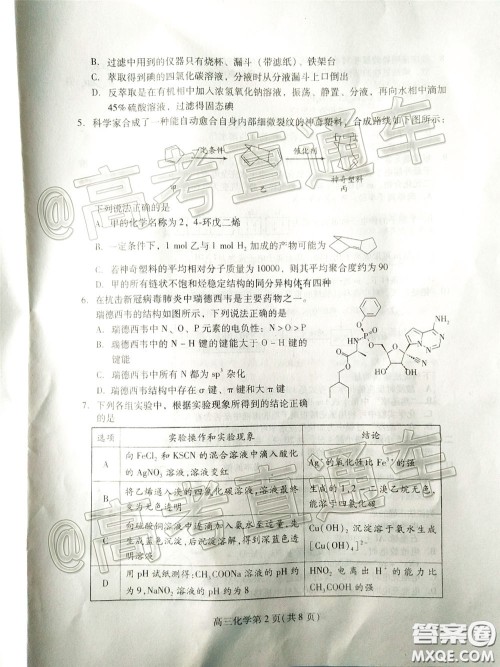 B. 过滤中用到的仪器只有烧杯、漏斗(带滤纸)、铁架台
C. 萃取得到碘的四氯化碳溶液,分液时从分液漏斗上口倒出
D. 反萃取是在有机相中加入浓氢氧化钠溶液,振荡、静置、分液,再向水相中滴加
45%硫酸溶液,过滤得固态碘
5. 科学家合成了一种能自动愈合自身内部细微裂纹的神奇塑料,合成路线如下图所示:
一定条件 催化剂
甲 乙 神奇塑料
丙
下列说法正确的是
A. 甲的化学名称为2,4-环戊二烯
B. 一定条件下,1 mol乙与1 mol H2加成的产物可能为
C. 若神奇塑料的平均相对分子质量为10000,则其平均聚合度约为90
D. 甲的所有链状不饱和烃稳定结构的同分异构体有四种
6. 在抗击新冠病毒肺炎中瑞德西韦是主要药物之一。
瑞德西韦的结构如图所示,下列说法正确的是
A. 瑞德西韦中N、O、P元素的电负性:N>O>P
B. 瑞德西韦中的N-H键的键能大于O-H键的
键能
C. 瑞德西韦中所有N都为sp3杂化
D. 瑞德西韦结构中存在σ键、π键和大π键
NH2
HN
CN
HO OH
7. 下列各组实验中,根据实验现象所得到的结论正确
的是
选项 实验操作和实验现象 结论
A 向FeCl2和KSCN的混合溶液中滴入酸化
的AgNO3溶液,溶液变红 Ag+的氧化性比Fe3+的强
B 将乙烯通入溴的四氯化碳溶液,溶液最终
变为无色透明 生成的1,2-二溴乙烷无色,
能溶于四氯化碳
C 向硫酸铜溶液中逐滴加入氨水至过量,先
生成蓝色沉淀,后沉淀溶解,得到深蓝色透
明溶液 Cu(OH)2沉淀溶于氨水生成
[Cu(OH)4]2-
D 用pH试纸测得:CH3COONa溶液的pH约
为9,NaNO2溶液的pH约为8 HNO2电离出H+的能力比
CH3COOH的强
高三化学第2页(共8页)
@高考直通车
@高考直通车
@高考直通车
答案圈
MXQE.COM